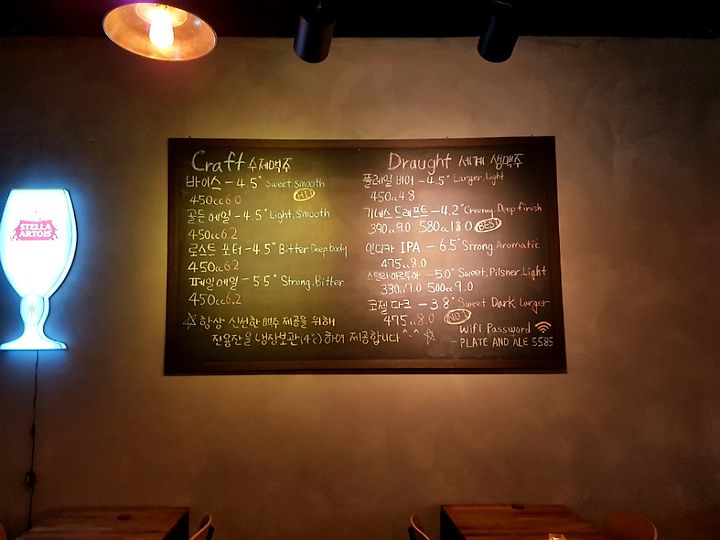 STELLA
ARTOIS
Craft 수제맥주
바이스 - 4.5° Sweet, Smooth
450cc 6.0 HIT!
골든 에일 - 4.5° Light, Smooth
450cc 6.2
로스트 포터 - 4.5° Bitter Deep body
450cc 6.2
페일 에일 - 5.5° Strong, Bitter
450cc 6.2
☆ 항상 신선한 맥주 제공을 위해
전용잔을 냉장보관(4℃)하여 제공합니다 ^-^ ☆
Draught 세계 생맥주
플레일 비어 - 4.5° Larger, Light
450cc 4.8
기네스 드래프트 - 4.2° Creamy, Deep finish
390cc 9.0 580cc 13.0 BEST
인디카 IPA - 6.5° Strong, Aromatic
475cc 8.0
스텔라 아르투아 - 5.0° Sweet, Pilsner, Light
330cc 7.0 500cc 9.0
코젤 다크 - 3.8° Sweet Dark larger
475cc 8.0 NO.1
Wifi Password
- PLATE AND ALE 5585